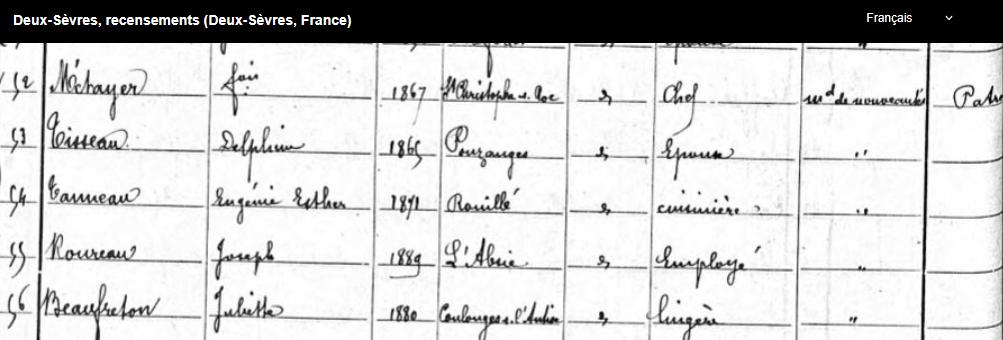 Deux-Sèvres, recensements (Deux-Sèvres, France) Français
52 Métayer 1867 St Christophe s. Roc d Chef md de nouveautés
53 Tisseau Delphine 1865 Pouzauges d Epouse "
54 Eugénie Esther 1891 Rouillé d cuisinière "
55 Joseph 1889 L'Absie d Employé "
56 Beaufreton Juliette 1880 Coulonges s. l'Autize d lingère "